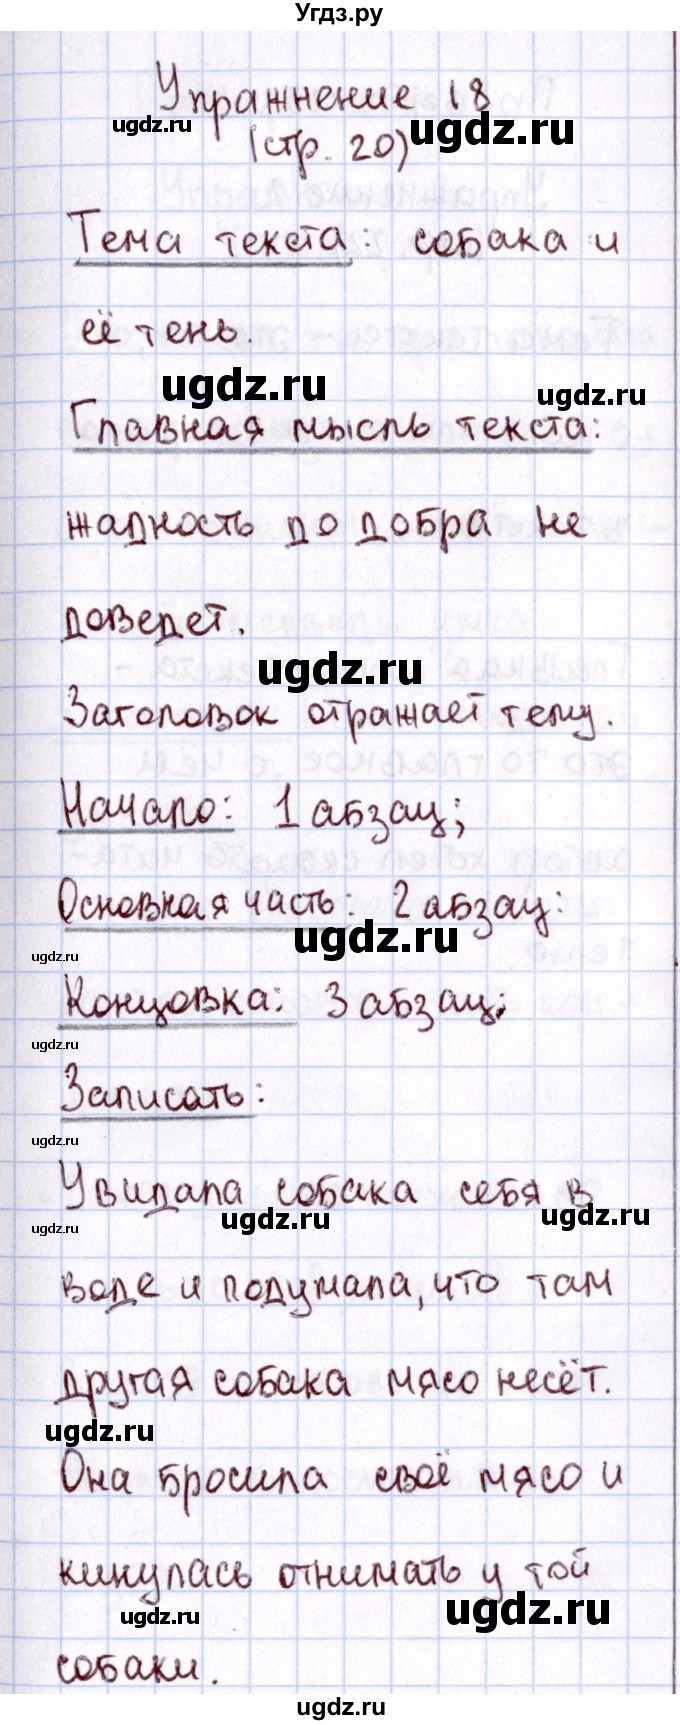 Угдз.ру
Упражнение 18
ugdz.ru ugdz.ru
(стр. 20)
Тема текста: собака и
её тень.
ugdz.ru ugdz.ru
Главная мысль текста:
жадность до добра не
доведет.
ugdz.ru
Заголовок отражает тему.
Начало: 1 абзац;
Основная часть: 2 абзац:
ugdz.ru ugdz.ru
Концовка: 3 абзац;
ugdz.ru
Записать:
ugdz.ru
Увидала собака себя в
ugdz.ru ugdz.ru ugdz.ru
воде и подумала, что там
другая собака мясо несёт.
ugdz.ru
Она бросила своё мясо и
кинулась отнимать у той
ugdz.ru ugdz.ru
собаки.
ugdz.ru